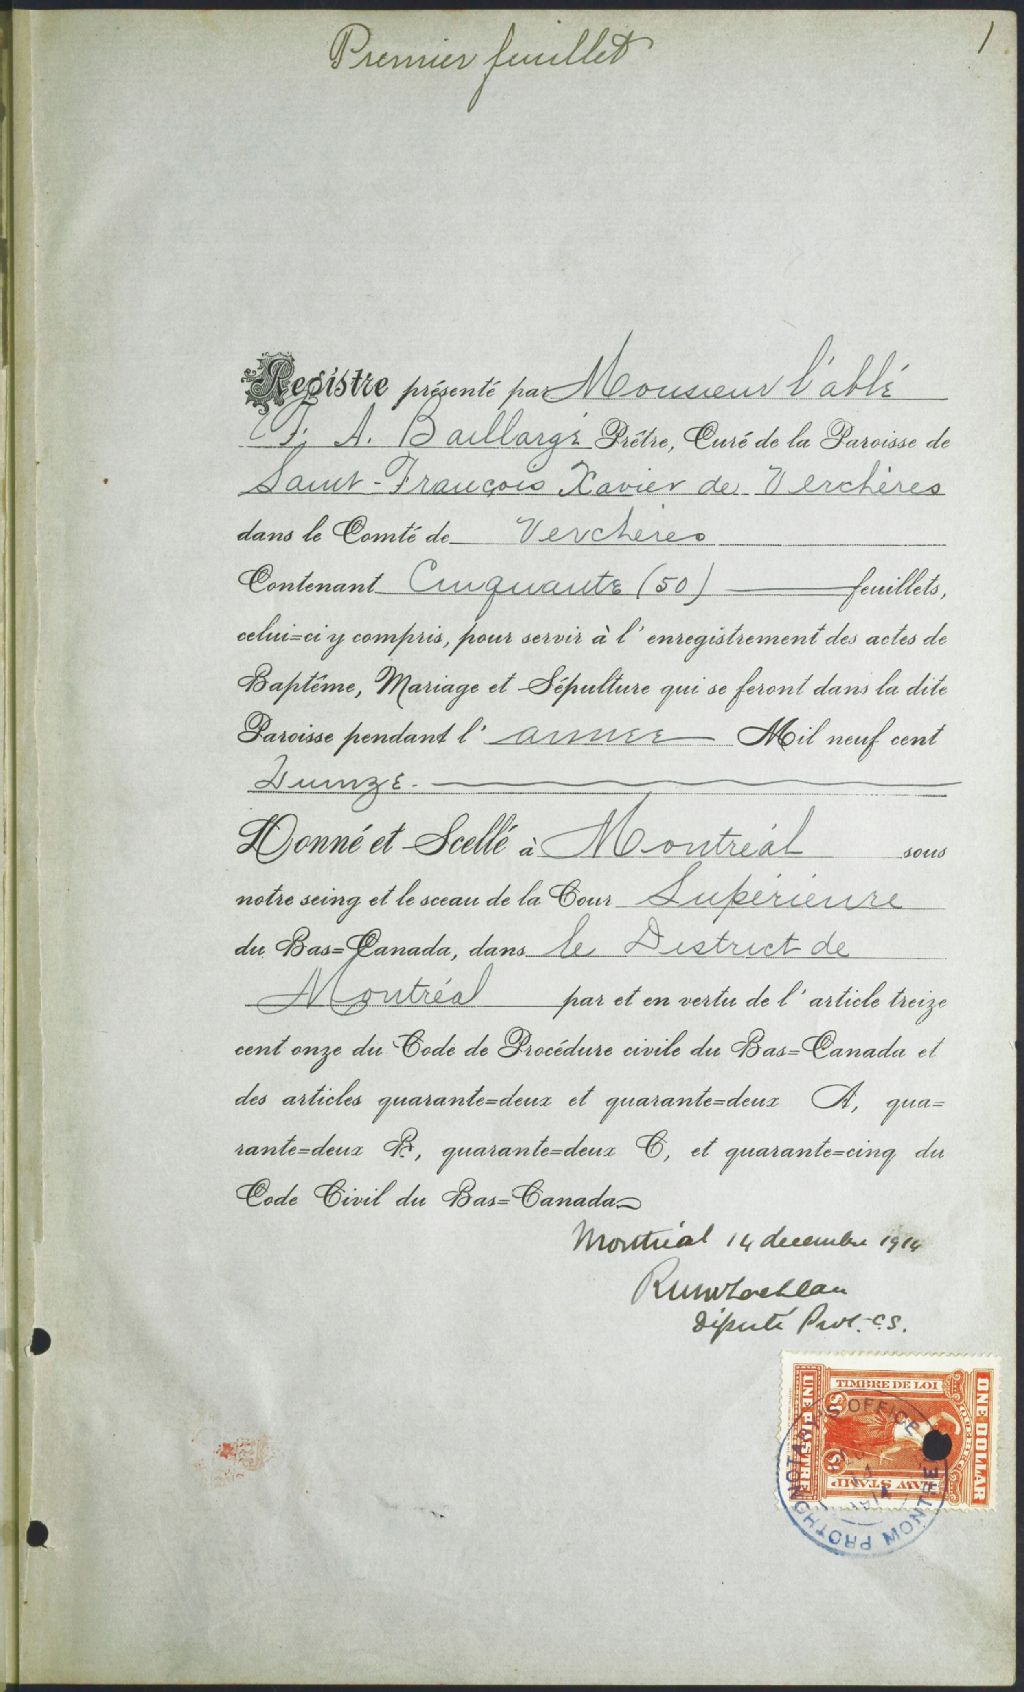 Premier feuillet
1
Registre présenté par Monsieur l'abbé
F. A. Baillargé Prêtre, Curé de la Paroisse de
Saint-François Xavier de Verchères
dans le Comté de Verchères
Contenant Cinquante (50) feuillets,
celui=ci y compris, pour servir à l'enregistrement des actes de
Baptême, Mariage et Sépulture qui se feront dans la dite
Paroisse pendant l'année Mil neuf cent
Quinze.
Donné et Scellé à Montréal sous
notre seing et le sceau de la Cour Supérieure
du Bas=Canada, dans le District de
Montréal par et en vertu de l'article treize
cent onze du Code de Procédure civile du Bas=Canada et
des articles quarante=deux et quarante=deux A, qua=
rante=deux B, quarante=deux C, et quarante=cinq du
Code Civil du Bas=Canada
Montréal 14 decembre 1914
Député Prot. C.S.
TIMBRE DE LOI
ONE DOLLAR
UNE PIASTRE
$1
LAW STAMP
PROTHONOTARY'S OFFICE